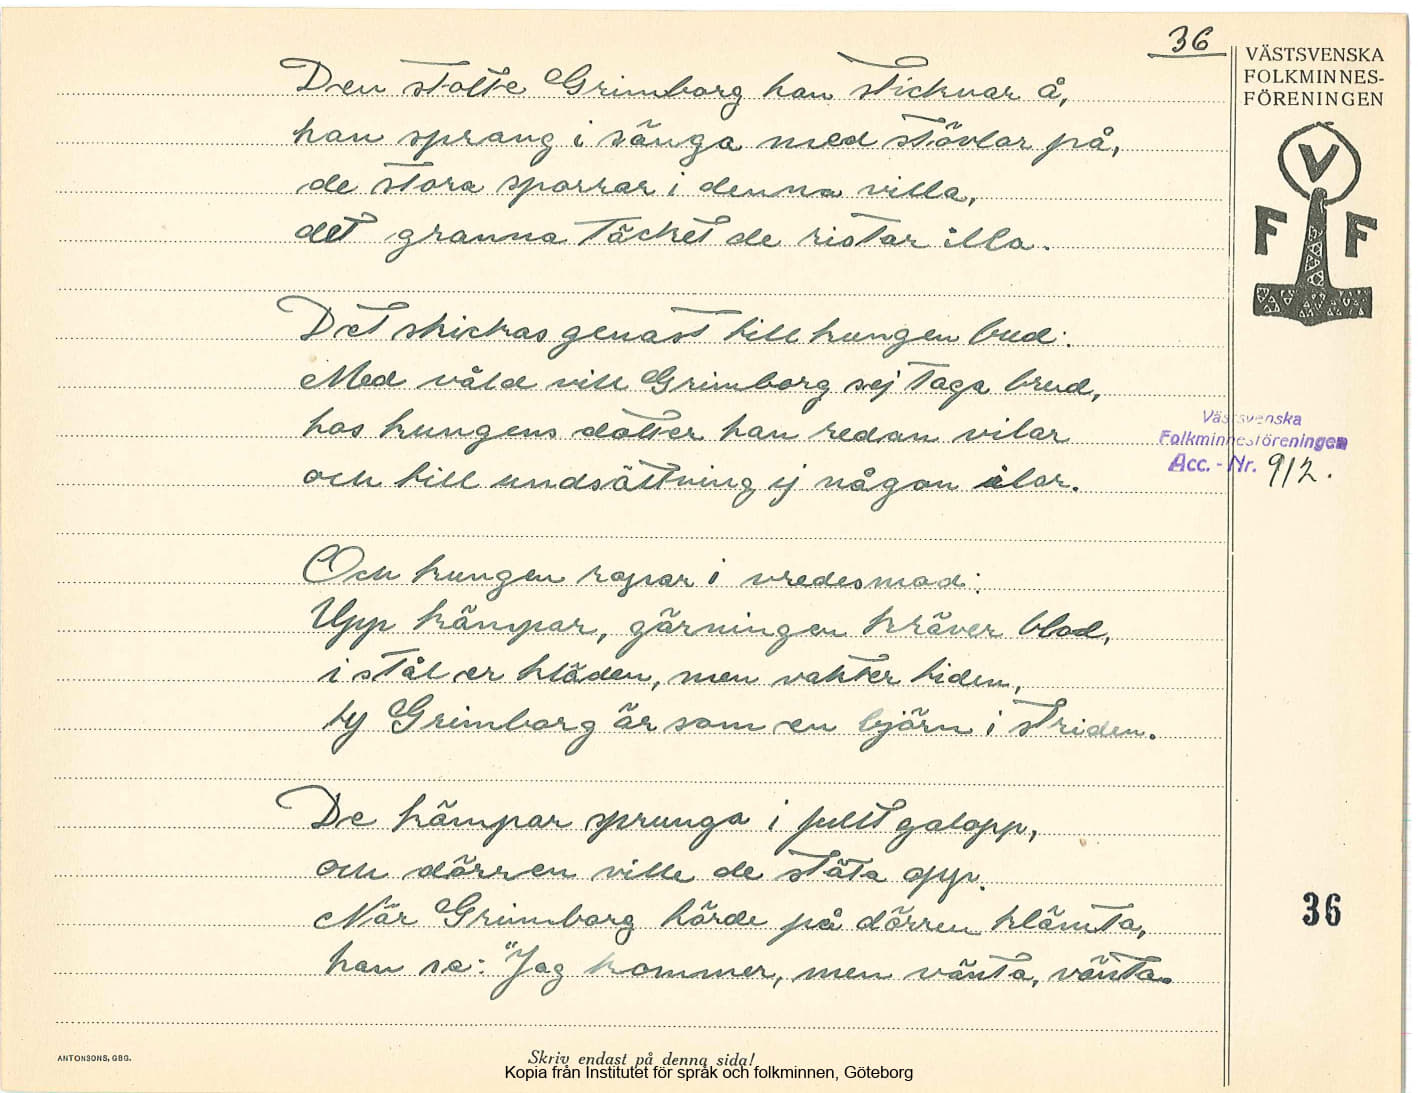 36
VÄSTSVENSKA
FOLKMINNES-
FÖRENINGEN
V
F F
Den stolte Grimborg han sticknar å,
han sprang i sänga med stövlar på,
de stora sporrar i denna villa,
det granna täcket de ristar illa.
Det skickas genast till kungen bud:
Med våld vill Grimborg sej taga brud,
hos kungens dotter han redan vilar
och till undsättning ej någon ilar.
Västsvenska
Folkminnesföreningen
Acc. - Nr. 912.
Och kungen ropar i vredesmod:
Upp kämpar, gärningen kräver blod,
i stål er kläden, men vakter tiden,
ty Grimborg är som en björn i striden.
De kämpar sprunga i fullt galopp,
och dörren ville de stöta opp.
När Grimborg hörde på dörren klämta,
han sa: "Jag kommer, men vänta, vänta.
36
ANTONSONS, GBG.
Skriv endast på denna sida!
Kopia från Institutet för språk och folkminnen, Göteborg